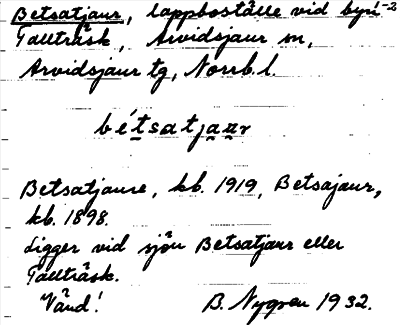 Betsatjaur, lappboställe vid byn -2
Tallträsk, Arvidsjaur sn,
Arvidsjaur tg, Norrb. l.
bétsatjaar
Betsatjaure, kb. 1919, Betsajaur,
kb. 1898.
Ligger vid sjön Betsatjaur eller
Tallträsk.
Vänd! B. Nygren 1932.